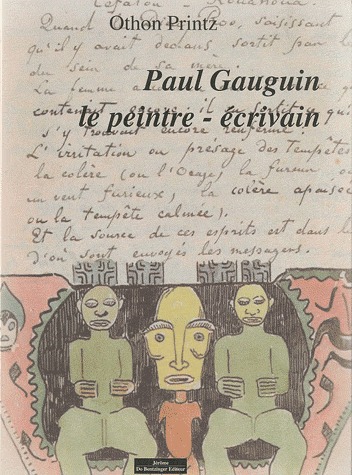 Othon Printz
Quand Poo, saisissant
qu'il y avait dedans, sortit
du sein de sa mère.
Paul Gauguin
La femme
le peintre - écrivain
s'y trouvait encore renfermé.
L'irritation ou présage des Tempêtes
la colère (ou l'Orage) la fureur ou
un vent furieux, la colère apaisée
ou la tempête calmée).
Et la source de ces esprits est dans le
d'où sont envoyés les messagers.
Jérôme
Do Bentzinger Editeur